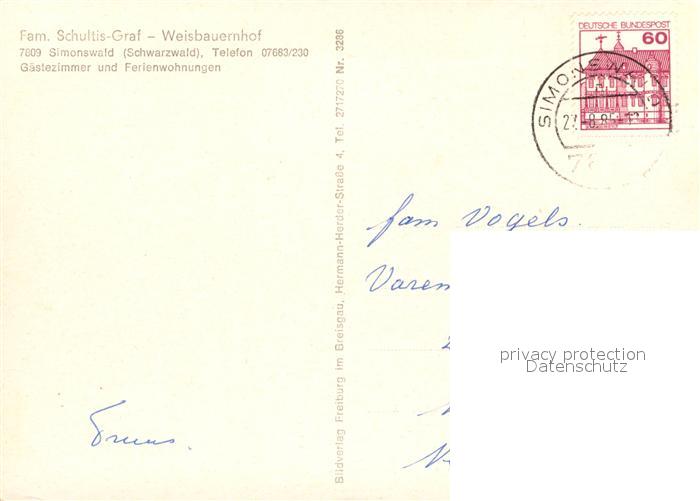 Fam. Schultis-Graf – Weisbauernhof
7809 Simonswald (Schwarzwald), Telefon 07683/230
Gästezimmer und Ferienwohnungen
Bildverlag Freiburg im Breisgau, Hermann-Herder-Straße 4, Tel. 2717270 Nr. 3286
DEUTSCHE BUNDESPOST
60
SIMONSWALD
27.-8.85-12
78
fam Vogels.
Varen
privacy protection
Datenschutz